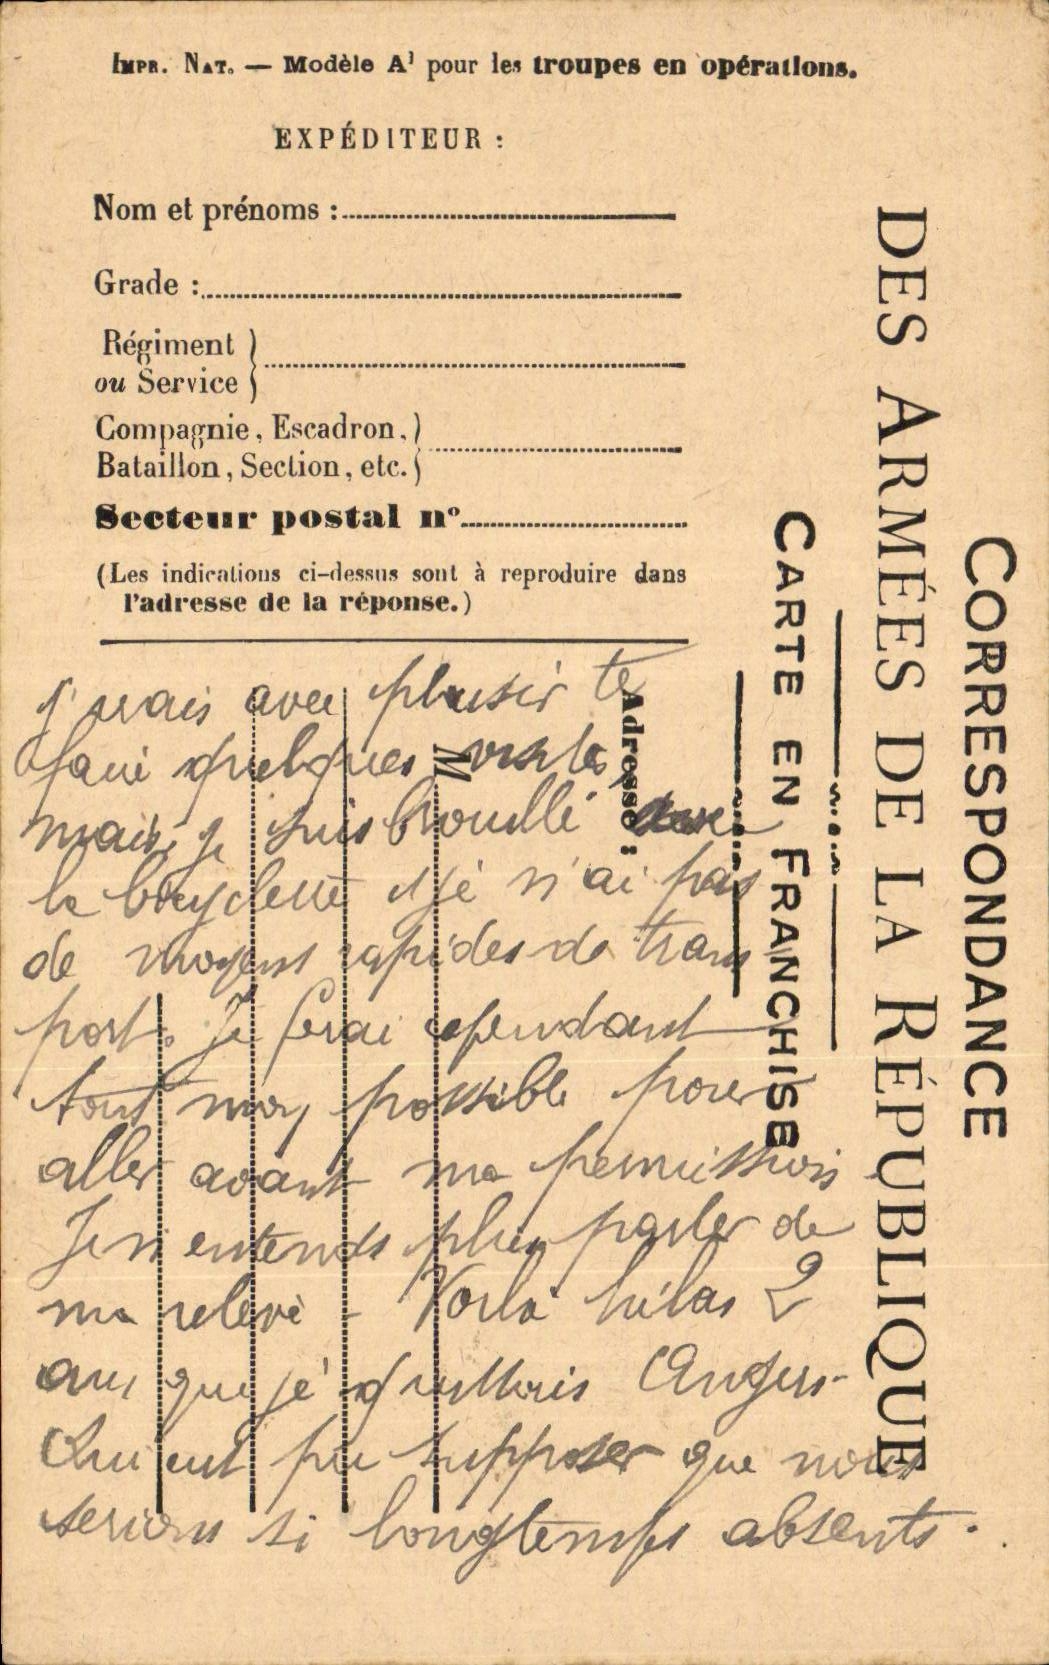 IMPR. NAT. — Modèle A¹ pour les troupes en opérations.
EXPÉDITEUR :
Nom et prénoms :
Grade :
Régiment
ou Service
Compagnie, Escadron,
Bataillon, Section, etc.
Secteur postal n°
(Les indications ci-dessus sont à reproduire dans
l'adresse de la réponse.)
CORRESPONDANCE
DES ARMÉES DE LA RÉPUBLIQUE
CARTE EN FRANCHISE
Adresse :
M
j'irais avec plaisir te
faire quelques visites
mais je suis brouillé avec
la bicyclette et je n'ai pas
de moyens rapides de trans
port. Je ferai cependant
tout mon possible pour
aller avant ma permission
Je n'entends plus parler de
ma relève - Voilà hélas 2
ans que je quittais Angers-
Qui eut pu supposer que nous
serions si longtemps absents.